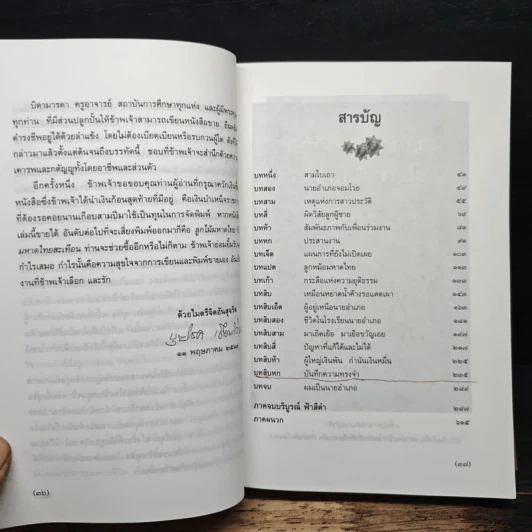 บิดามารดา ครูอาจารย์ สถาบันการศึกษาทุกแห่ง และผู้มีพระคุณ
ทุกท่าน ที่มีส่วนปลูกปั้นให้ข้าพเจ้าสามารถเขียนหนังสือขาย
ดำรงชีพอยู่ได้ด้วยลำแข้ง โดยไม่ต้องเบียดเบียนหรือรบกวนผู้ใด
กล่าวมาแล้วตั้งแต่ต้นจนถึงบรรทัดนี้ ขอบที่ข้าพเจ้าจะสำนึกด้วยความ
เคารพและกตัญญูทั้งโดยอาชีพและส่วนตัว
อีกครั้งหนึ่ง ข้าพเจ้าขอขอบคุณท่านผู้อ่านที่กรุณาควักเงิน
หนังสือซึ่งข้าพเจ้าได้นำเงินก้อนสุดท้ายที่มีอยู่ คือเงินบำเหน็จ
ที่ต้องรอคอยนานเกือบสามปีมาใช้เป็นทุนในการจัดพิมพ์ หาก
เล่มนี้ขายได้ อันดับต่อไปที่จะเสี่ยงพิมพ์ออกมาก็คือ ลูกไม้มหาดไทย
มหาดไทยสะเทือน ท่านจะช่วยซื้ออีกหรือไม่ก็ตาม ข้าพเจ้าย่อมยิ้มรับ
กำไรเสมอ กำไรนั้นคือความสุขใจจากการเขียนและพิมพ์ขายเอง
งานที่ข้าพเจ้าเลือก และรัก
ด้วยไมตรีจิตอันสูงรัด
๑๑ พฤษภาคม
(๓๖)
สารบัญ
บทหนึ่ง สามใบเถา ๔๑
บทสอง นายอำเภอจอมโวย ๔๙
บทสาม เหตุแห่งการสาวประวัติ ๕๕
บทสี่ ผิดวิสัยลูกผู้ชาย
บทห้า สัมพันธภาพกับเพื่อนร่วมงาน
บทหก ประสานงาน
บทเจ็ด แผนการที่ยังไม่เปิดเผย
บทแปด ลูกหม้อมหาดไทย
บทเก้า กระสือแห่งความยุติธรรม
บทสิบ เหมือนหยาดน้ำค้างรอแดดเผา
บทสิบเอ็ด ผู้อยู่เหนือนายอำเภอ
บทสิบสอง ชีวิตในโรงเรียนนายอำเภอ
บทสิบสาม มาเถิดเอ๋ย มาเถิดขวัญเอย
บทสิบสี่ ปัญหาที่แก้ได้และไม่ได้
บทสิบห้า ผู้ใหญ่เงินพัน กำนันเงินหมื่น
บทสิบหก บันทึกความทรงจำ
บทจบ ผมเป็นนายอำเภอ
ภาคจบบริบูรณ์ ฟ้าสีดำ
ภาคผนวก ๖๑๕
(๓๗)